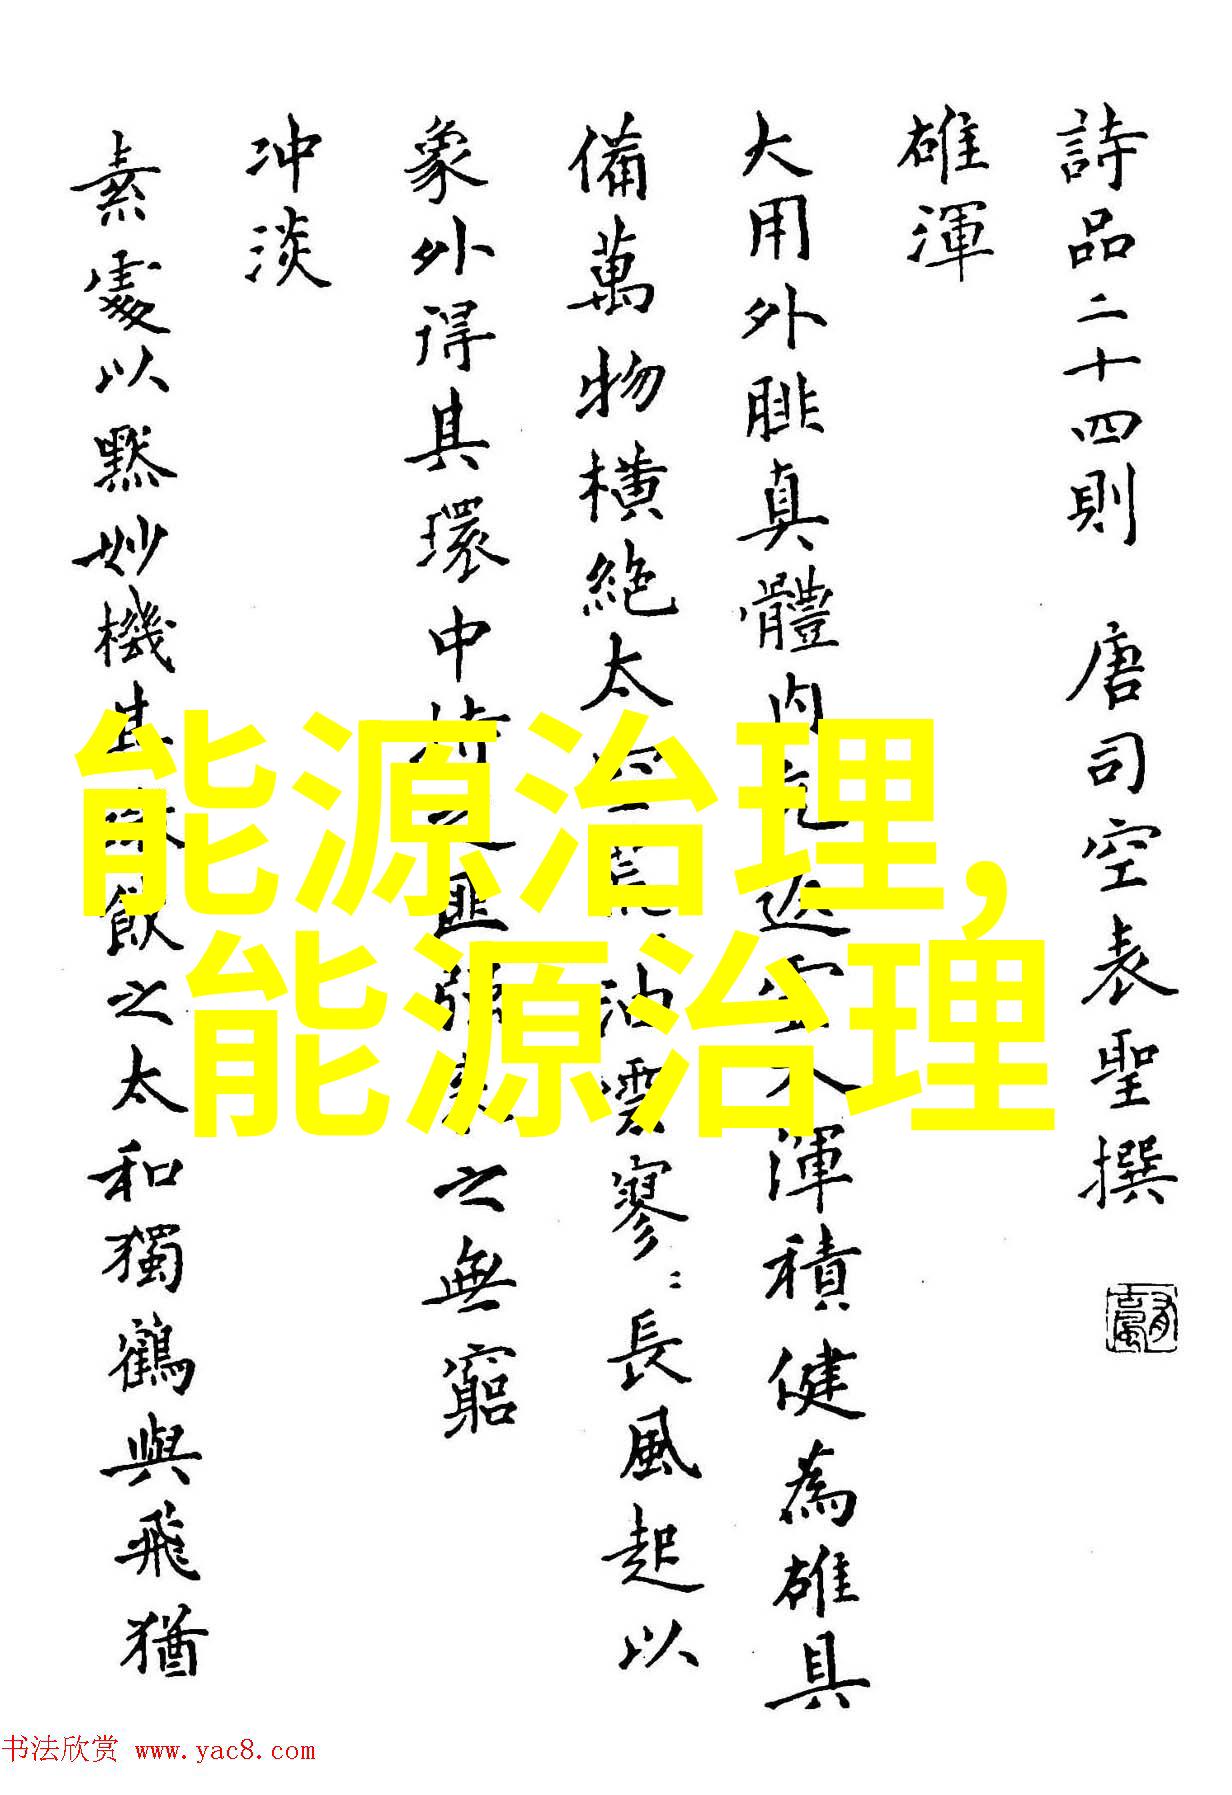 詩品二十四則 唐司空表聖撰
雄渾
大用外腓真體内充返虚入渾積健為雄具
備萬物橫絶太空荒荒油雲寥〻長風起以
象外得其環中持之匪强来之無窮
冲淡
素處以默妙機其微飲之太和獨鶴與飛猶
能源治理,
能源治理
书法欣赏 www.yac8.com